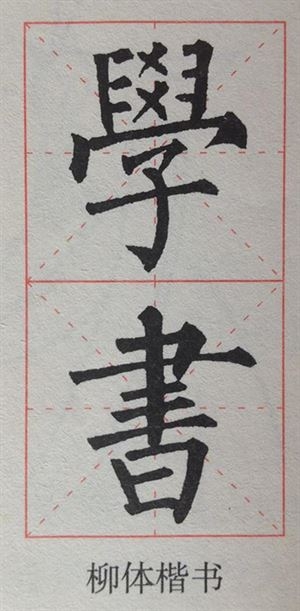 學
書
柳体楷书